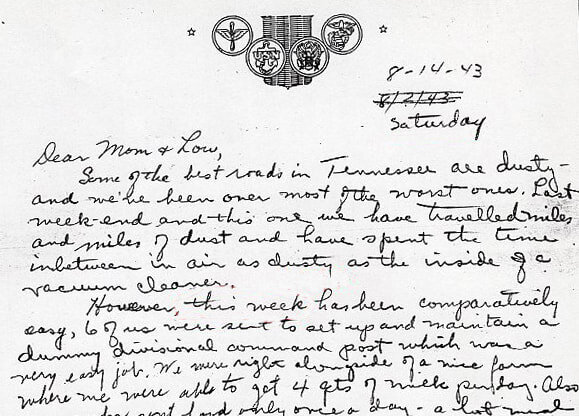 8-14-43
8/2/43
Saturday
Dear Mom & Low,
Some of the best roads in Tennessee are dusty-
and we've been over most of the worst ones. Last
week-end and this one we have travelled miles
and miles of dust and have spent the time
inbetween in air as dusty as the inside of a
vacuum cleaner.
However, this week has been comparatively
easy, 6 of us were sent to set up and maintain a
dummy divisional command post which was a
very easy job. We were right alongside of a nice farm
where we were able to get 4 qts of milk per day. Also
only once a day - a hot meal